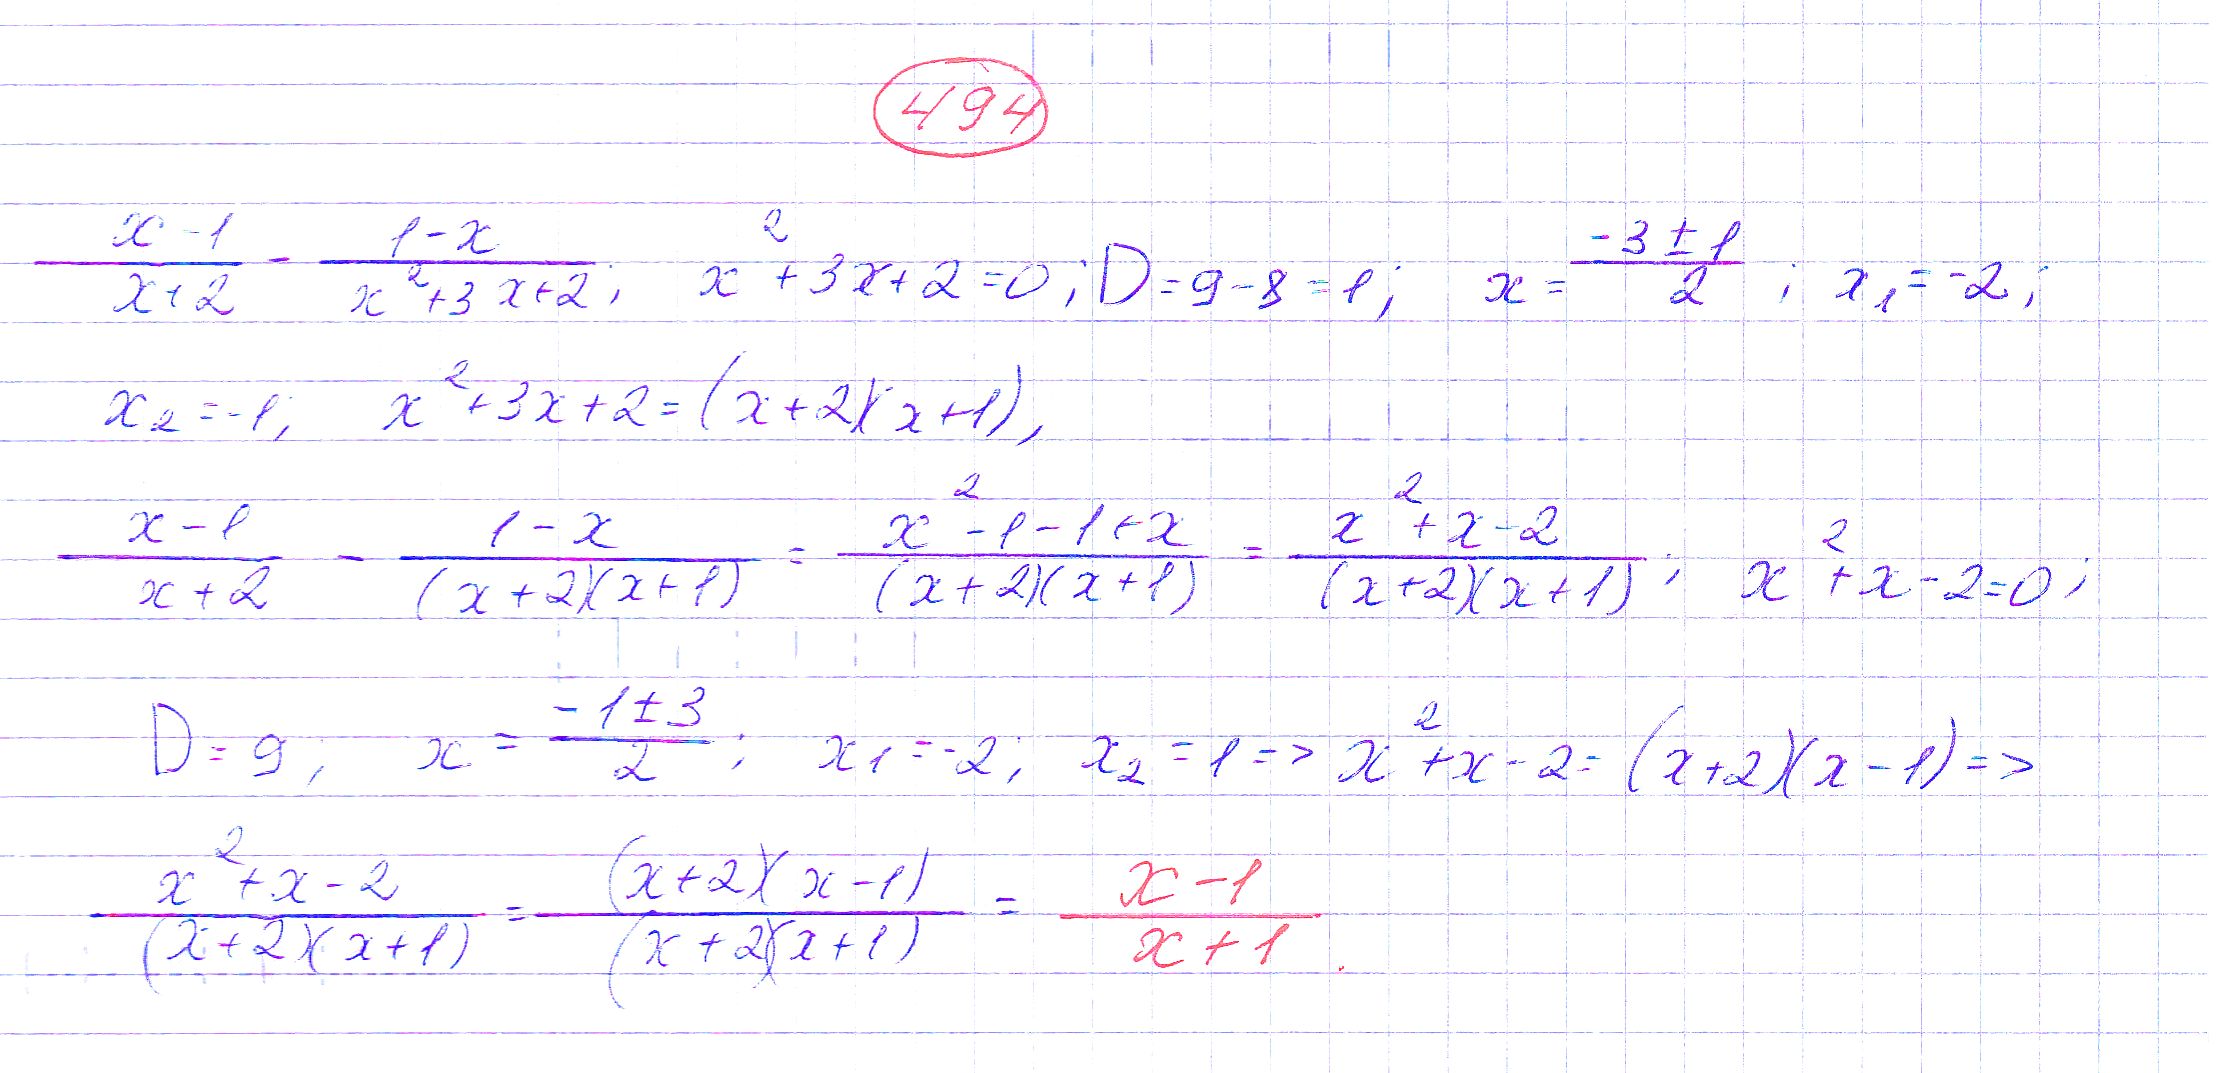 494
(x-1)/(x+2) - (1-x)/(x²+3x+2); x²+3x+2=0; D=9-8=1; x=(-3±1)/2; x₁=-2;
x₂=-1; x²+3x+2=(x+2)(x+1),
(x-1)/(x+2) - (1-x)/((x+2)(x+1)) = (x²-1-1+x)/((x+2)(x+1)) = (x²+x-2)/((x+2)(x+1)); x²+x-2=0;
D=9; x=(-1±3)/2; x₁=-2; x₂=1=> x²+x-2=(x+2)(x-1)=>
(x²+x-2)/((x+2)(x+1)) = ((x+2)(x-1))/((x+2)(x+1)) = (x-1)/(x+1).